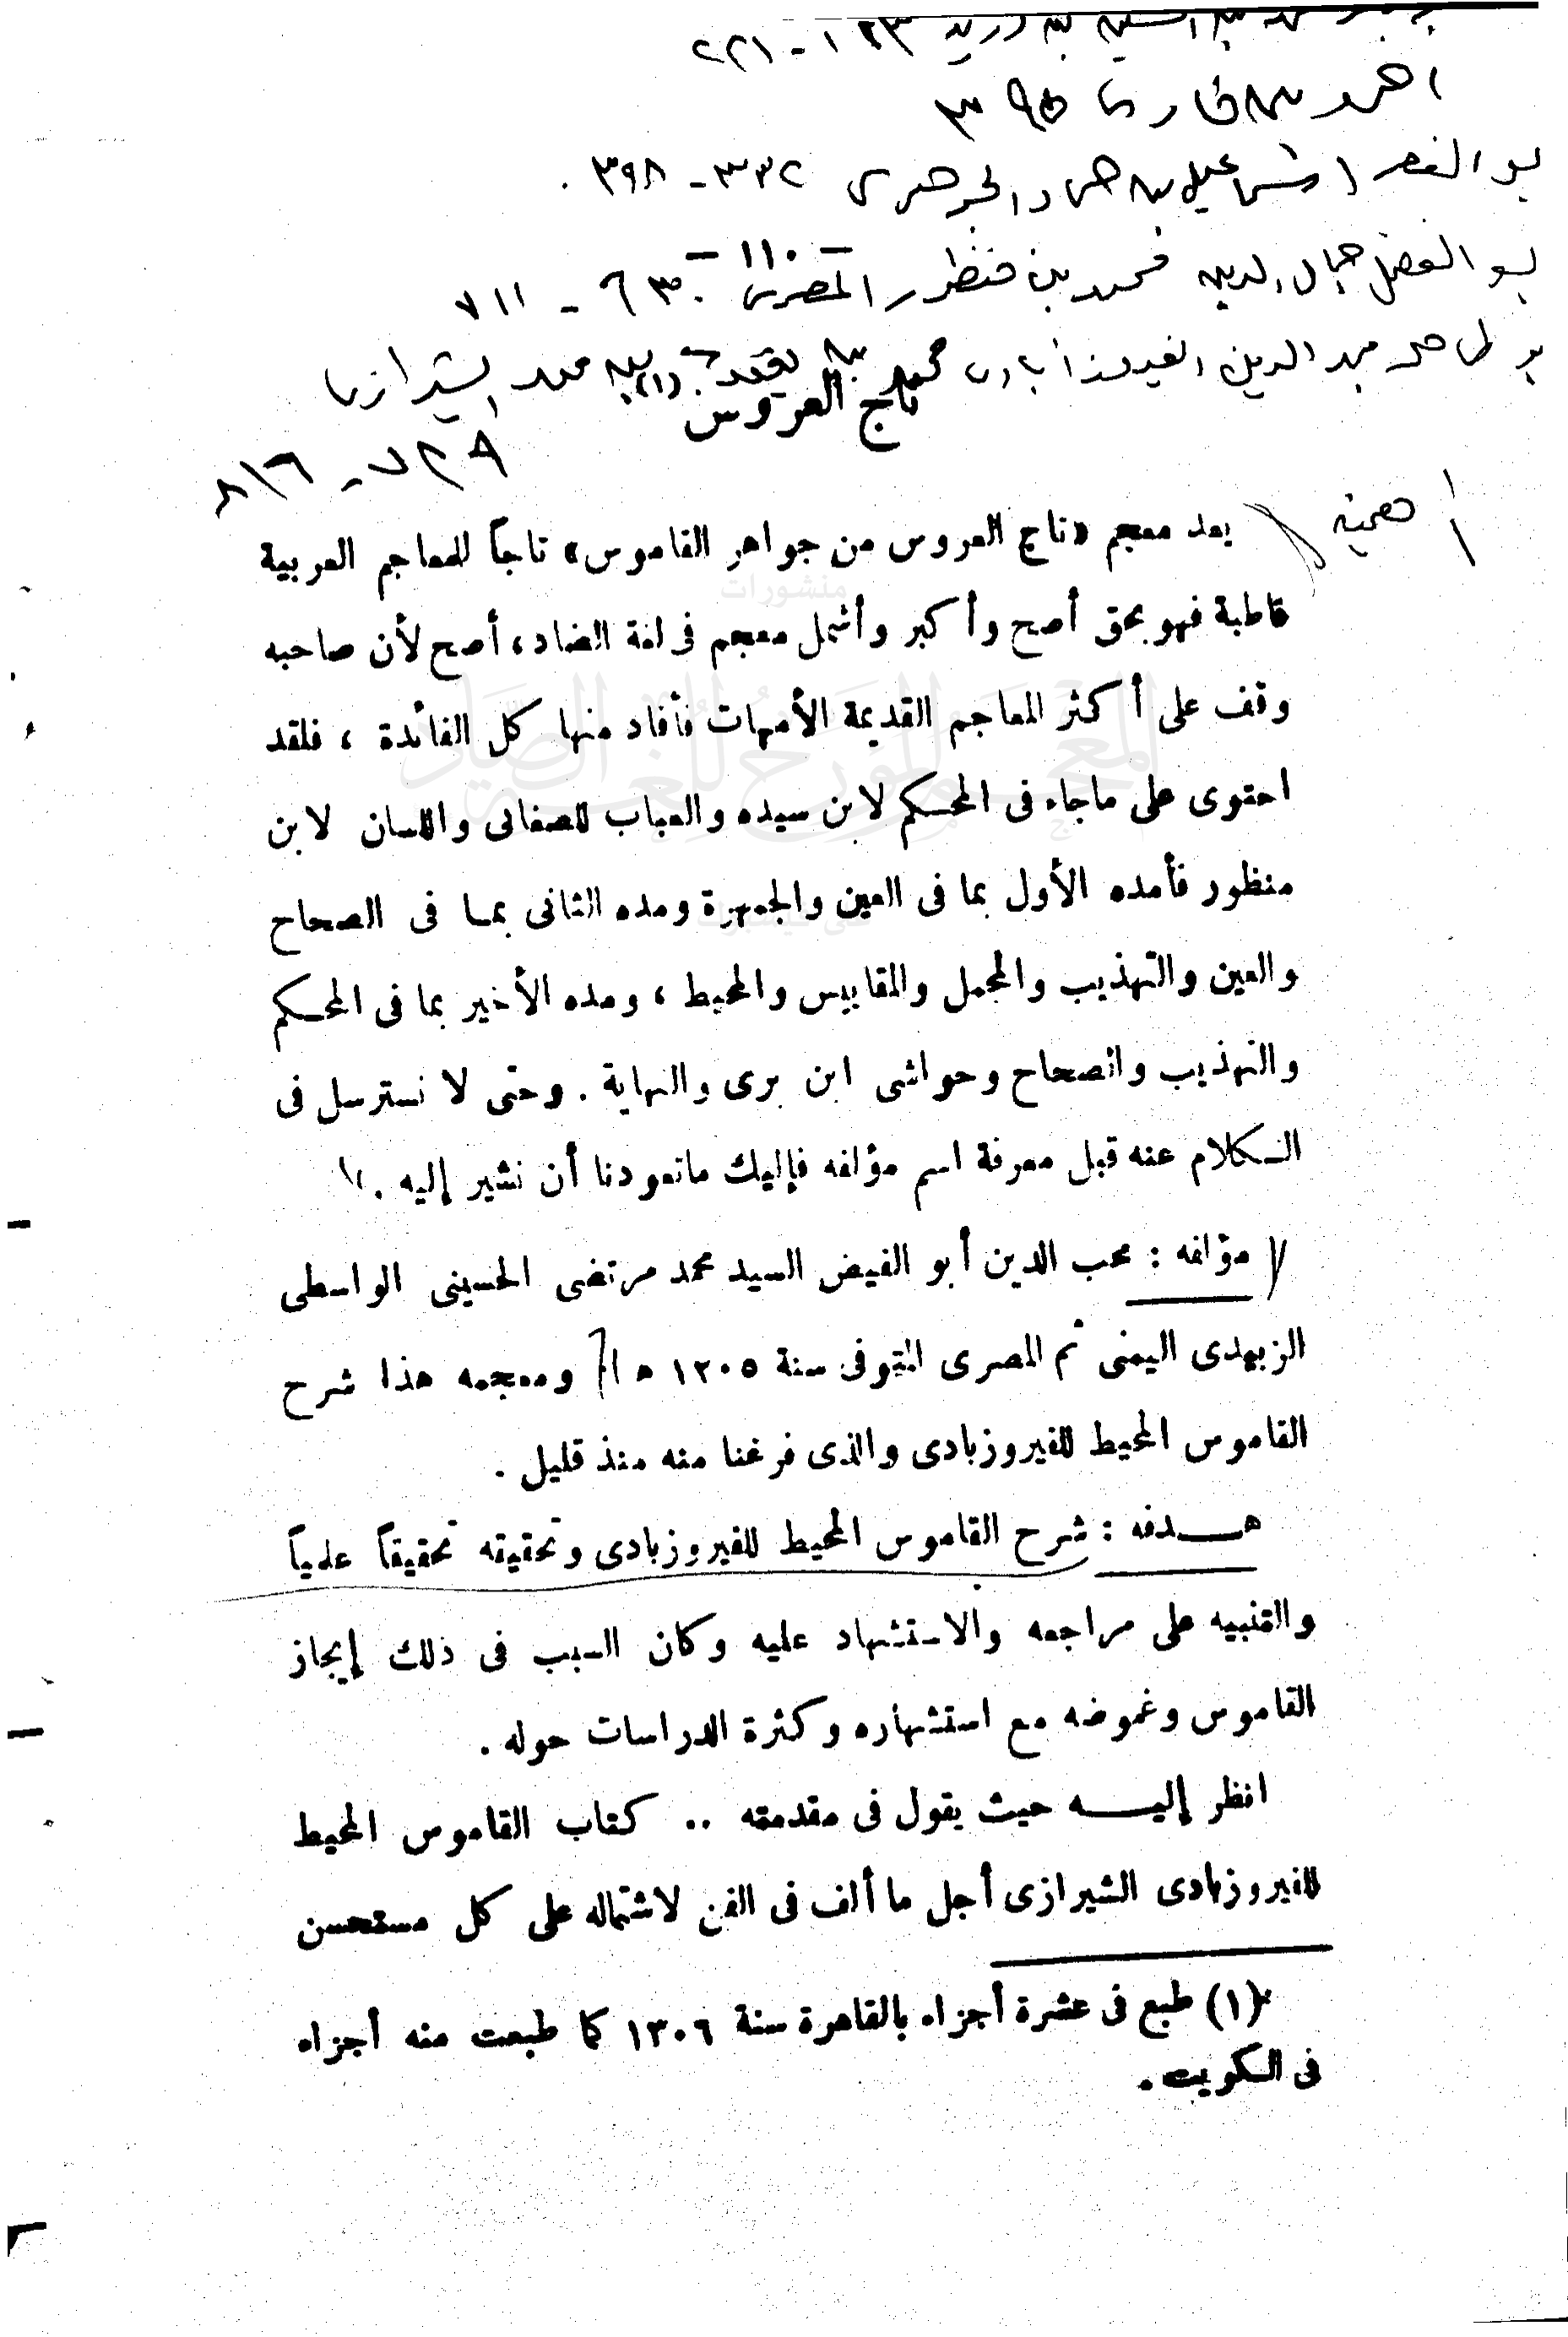 احمد بن فارس ٣٩٥
بو النصر اسماعيل بن حماد الجوهرى ٣٣٢ - ٣٩٨ .
- ١١٠ -
بو الفضل جمال الدين محمد بن منظور المصرى ٦٣٠ - ٧١١
طاهر مجد الدين الفيروزابادى محمد بن يعقوب بن محمد الشيرازى
تاج العروس (١)
٧٢٩ - ٨١٦
أهميته
يعد معجم «تاج العروس من جواهر القاموس» تاجاً للمعاجم العربية
قاطبة فهو بحق أصح وأكبر وأشمل معجم فى لغة الضاد، أصح لأن صاحبه
وقف على أكثر المعاجم القديمة الأمهات فأفاد منها كل الفائدة ، فلقد
احتوى على ماجاء فى المحكم لابن سيده والعباب للصغانى واللسان لابن
منظور فأمده الأول بما فى العين والجمهرة ومده الثانى بما فى الصحاح
والعين والتهذيب والمجمل والمقاييس والمحيط ، ومده الأخير بما فى المحكم
والتهذيب والصحاح وحواشى ابن برى والنهاية . وحتى لا نسترسل فى
الكلام عنه قبل معرفة اسم مؤلفه فإليك ماتعودنا أن نشير إليه .
مؤلفه : محب الدين أبو الفيض السيد محمد مرتضى الحسينى الواسطى
الزبيدى اليمنى ثم المصرى المتوفى سنة ١٢٠٥ ه ومعجمه هذا شرح
القاموس المحيط للفيروزبادى والذى فرغنا منه منذ قليل .
هـــدفه : شرح القاموس المحيط للفيروزبادى وتحقيقه تحقيقاً علمياً
والتنبيه على مراجعه والاستشهاد عليه وكان السبب فى ذلك إيجاز
القاموس وغموضه مع استشهاره وكثرة الدراسات حوله .
انظر إليـــه حيث يقول فى مقدمته .. كتاب القاموس المحيط
للفيروزبادى الشيرازى أجل ما ألف فى الفن لاشتماله على كل مستحسن
(١) طبع فى عشرة أجزاء بالقاهرة سنة ١٣٠٦ كما طبعت منه أجزاء
فى الكويت .
منشورات
المعجم المؤرخ للغة الضاد